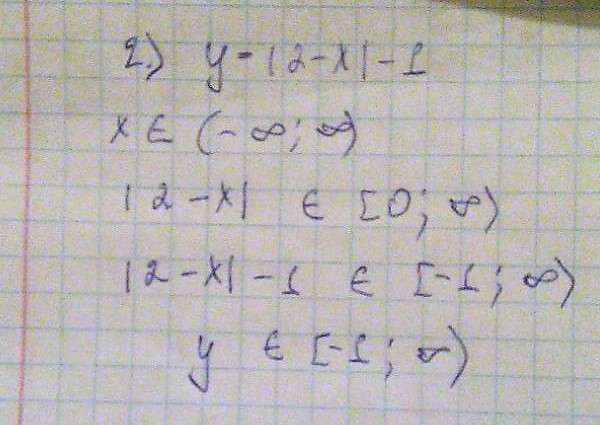 2.) y = |2-x| - 1
x ∈ (-∞; ∞)
|2-x| ∈ [0; ∞)
|2-x| - 1 ∈ [-1; ∞)
y ∈ [-1; ∞)